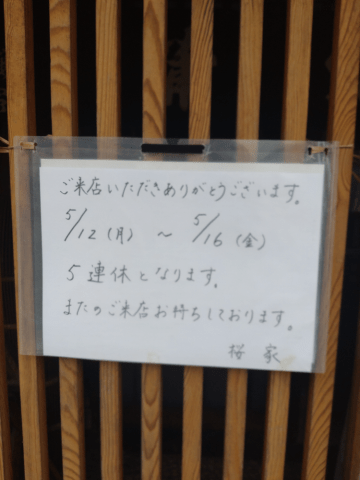 ご来店いただきありがとうございます。
5/12(月) ～ 5/16(金)
5連休となります。
またのご来店お待ちしております。
桜家